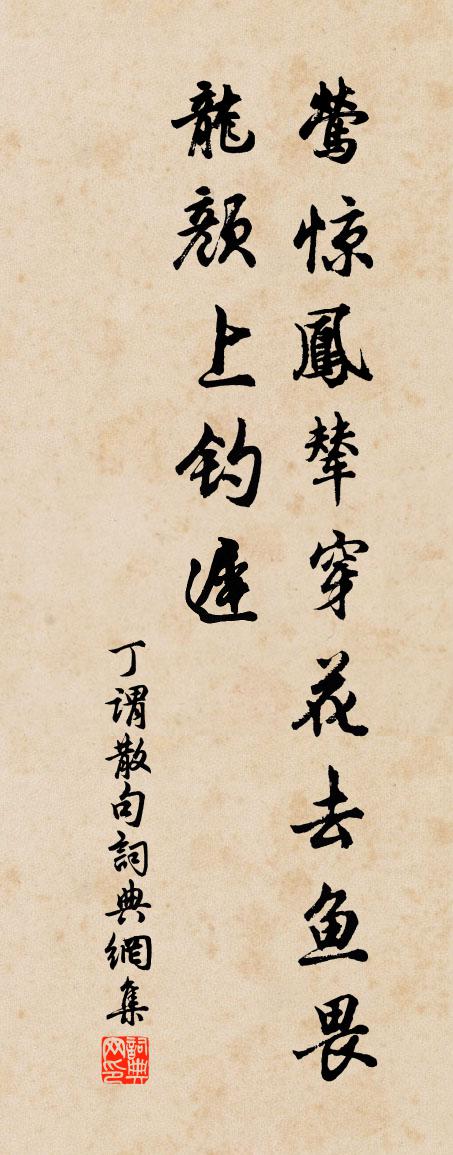 莺惊鳳輦穿花去鱼畏
龍顔上钓遲
丁谓散句詞典網集
詞典网印